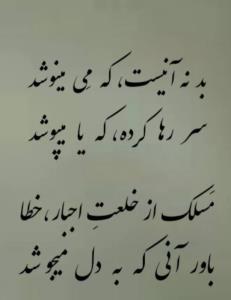 بد نه آنیست، که مِی مینوشد
سر رها کرده، که پا میپوشد
مَسلک از خلعتِ اجبار، خطا
باور آنی که به دل میجوشد